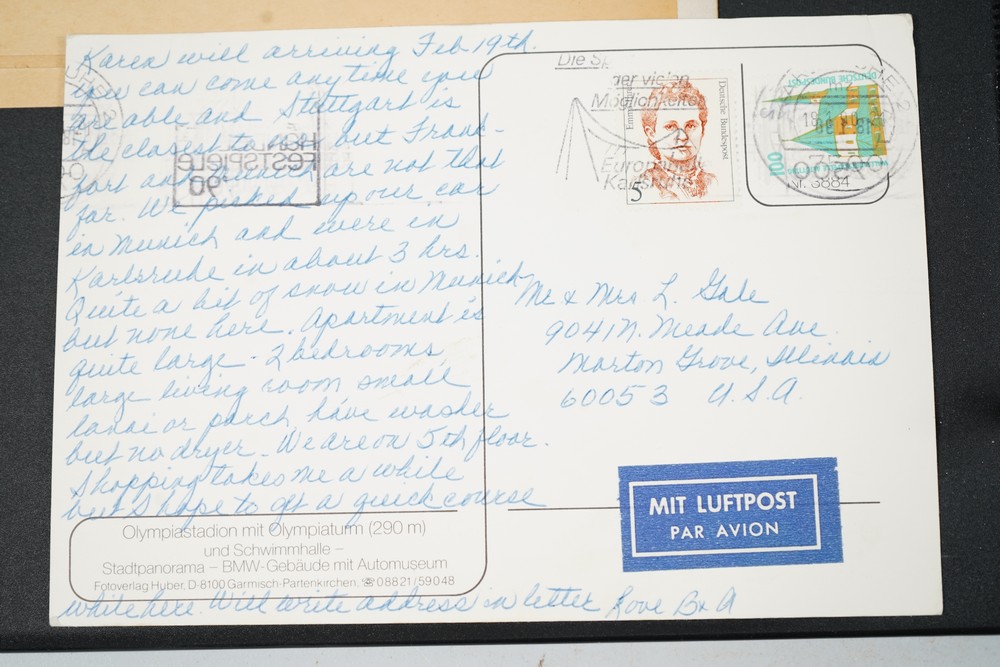 Karen will arriving Feb 19th.
you can come anytime you
are able and Stuttgart is
the closest to us but Frank-
fort and Munich are not that
far. We picked up our car
in Munich and were in
Karlsrude in about 3 hrs.
Quite a bit of snow in Munich
but none here. Apartment is
quite large - 2 bedrooms
large living room small
lanai or porch, have washer
but no dryer. We are on 5th floor.
Shopping takes me a while
but I hope to get a quick course
while here. Will write address in letter Love B & A
Olympiastadion mit Olympiaturm (290 m)
und Schwimmhalle –
Stadtpanorama – BMW-Gebäude mit Automuseum
Fotoverlag Huber, D-8100 Garmisch-Partenkirchen, ☏ 08821/59048
FESTSPIELE
90
Die
der vielen
Möglichkeiten
Karlsruhe
Deutsche Bundespost
5
DEUTSCHE BUNDESPOST
100
Nr. 8884
Mr & Mrs L. Gale
9041 N. Meade Ave.
Morton Grove, Illinois
60053 U.S.A.
MIT LUFTPOST
PAR AVION